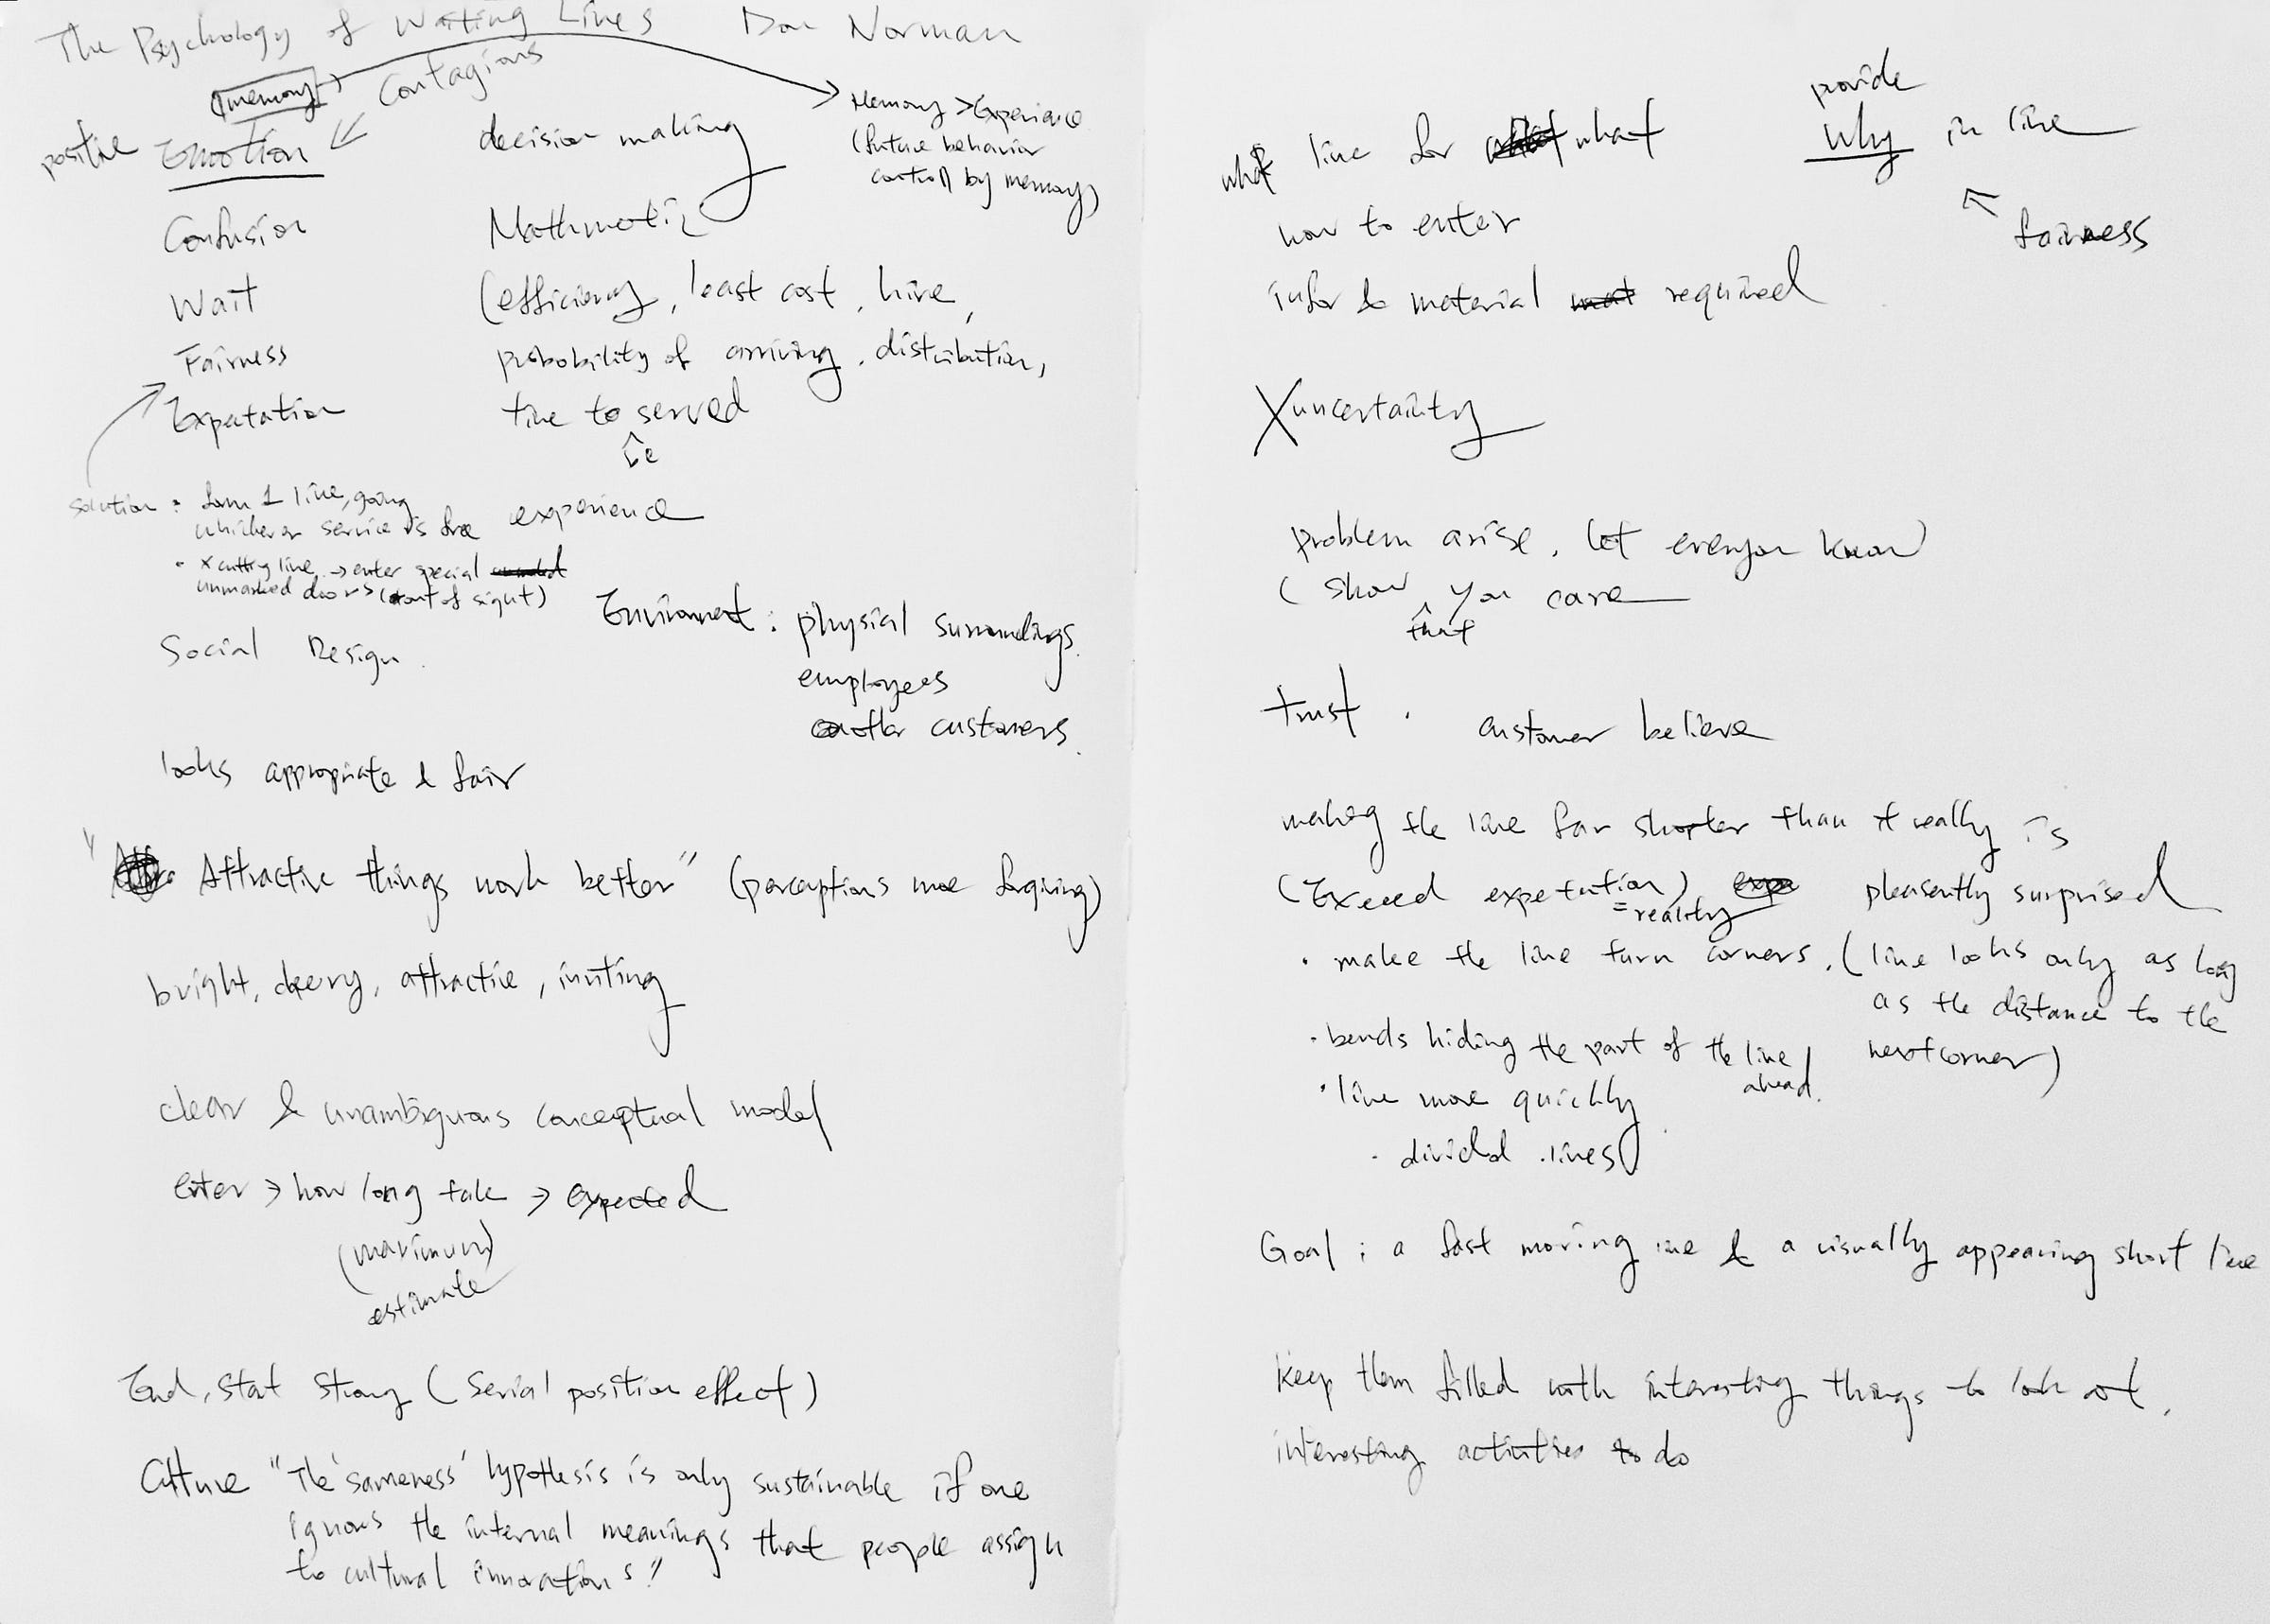 The Psychology of Waiting Lines Don Norman
(memory) Contagions
positive Emotion
decision making
Memory > Experience
(future behavior
control by memory)
Confusion
Mathmatic
Wait
(efficiency, least cost, hire,
Fairness
probobility of arriving, distribution,
Expetation
time to served
be
solution : form 1 line, going
whichever service is free
experience
• x cutting line → enter special
unmarked doors (out of sight)
Enviroment : physial surroundings.
employees
other customers.
Social Design.
looks appropriate & fair
" Attractive things work better" (perceptions more forgiving)
bright, cheery, attractive, inviting
clear & unambiguous conceptual model
enter > how long take → expected
(maximum)
estimate
End, start strong (Serial position effect)
Culture "The 'sameness' hypothesis is only sustainable if one
ignores the internal meanings that people assign
to cultural innovations."
what line for what
provide
why in line
↖ fairness
how to enter
infor & material required
X uncertainty
problem arise, let everyone know
(show you care
that
trust. customer believe
making the line far shorter than it really is
(Exceed expetation) pleasently surprised
= reality
• make the line turn corners. (line looks only as long
as the distance to the
next corner)
• bends hiding the part of the line
ahead.
• line move quickly.
• divided lines
Goal : a fast moving line & a visually appearing short line
keep them filled with interesting things to look at,
interesting activities to do